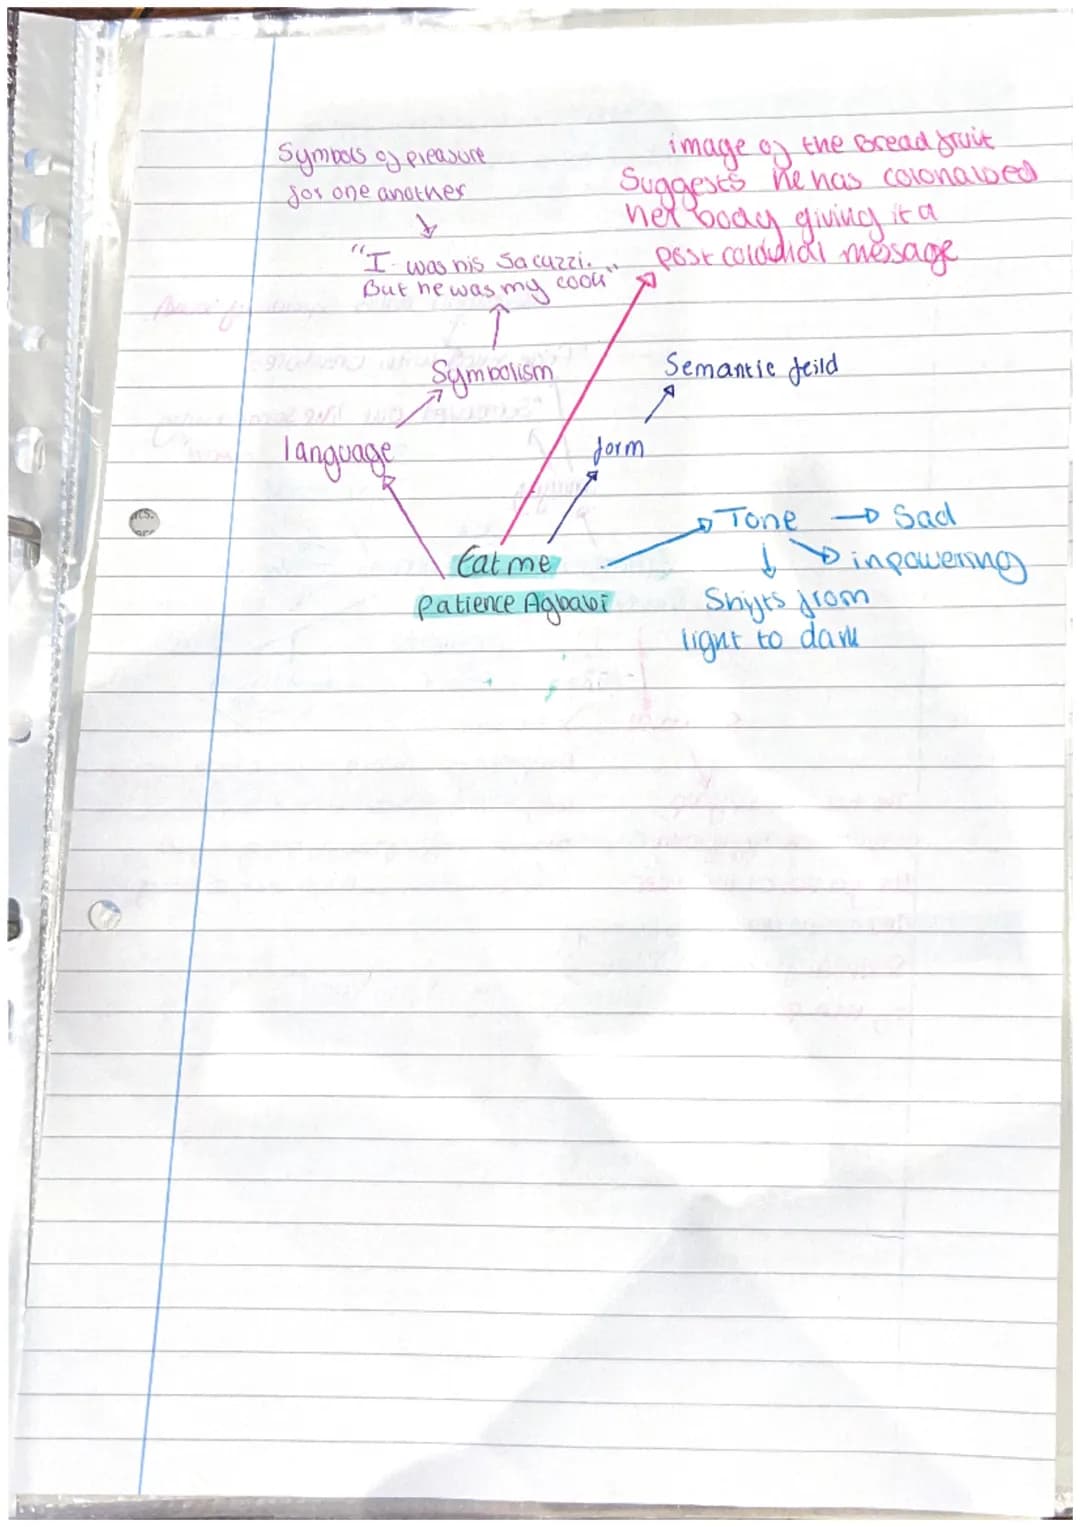 Symbols of pleasure
for one another
"I was his Jacuzzi.
But he was my cook"
Symbolism
language
image of the Breadfruit
Suggests he has colonalised
her body giving it a
post colounial message
Semantic feild
form
Eat me
Patience Agbabi
Tone → Sad
inpowering
Shifts from
light to dark